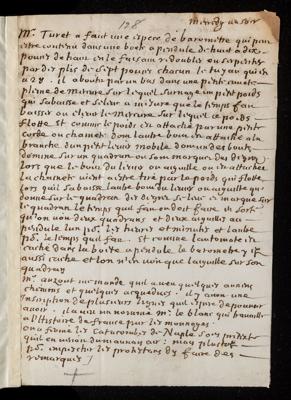 128
Mercredy au soir
Mr. Turet a faut une espece de barometre qui peut
estre contenu dans une boete a pendule de huit a dix
pouces de haut en le faisant redoubler en serpentes
par des plis de sept pouces chacun le tuyau qui en
a 28. il aboutit par un bas dans une petite cuvette
pleine de mercure sur lequel surnage un petit poids
qui sabaisse et seleve a mesure que le temps fait
baisser ou elever le mercure sur lequel ce poids
flotte. et comme le poids est attaché par une petite
corde ou chainete dont lautre bout est attaché a la
branche dun petit levier mobile dont un des bouts
donne sur un quadran ou son marqués des degres
lors que le bout du levier ou aiguille ou est attachée
la chainete vient a estre tiré par le poids qui flotte
lors quil sabaisse lautre bout du levier ou aiguille qui
donne sur le quadran des degrez seleve et marque sur
le quadran le temps quil fait ou doit faire. de sorte
qu'on voit deux quadrans et deux aiguilles au
pendule lun pr. les heures et minutes et lautre
pr. le temps quil fait. et comme lautomate est
caché dans la boete a pendule le barometre y est
aussi caché et lon n'en voit que laiguille sur son
quadran
Mr. auzout me mande quil a veu quelques anciens
chemins et quelques acqueducs. il y a une
Inscription de plusieurs lignes quil espere de pouvoir
avoir. il a veu un nommé Mr. le blanc qui travaille
a l'Histoire de france par les monnoyes.
on a fermé les Catacombes de Naple sous pretexte
quil en vient du mauvais air: mais plustost
pr. impescher les protestans de faire des
remarques